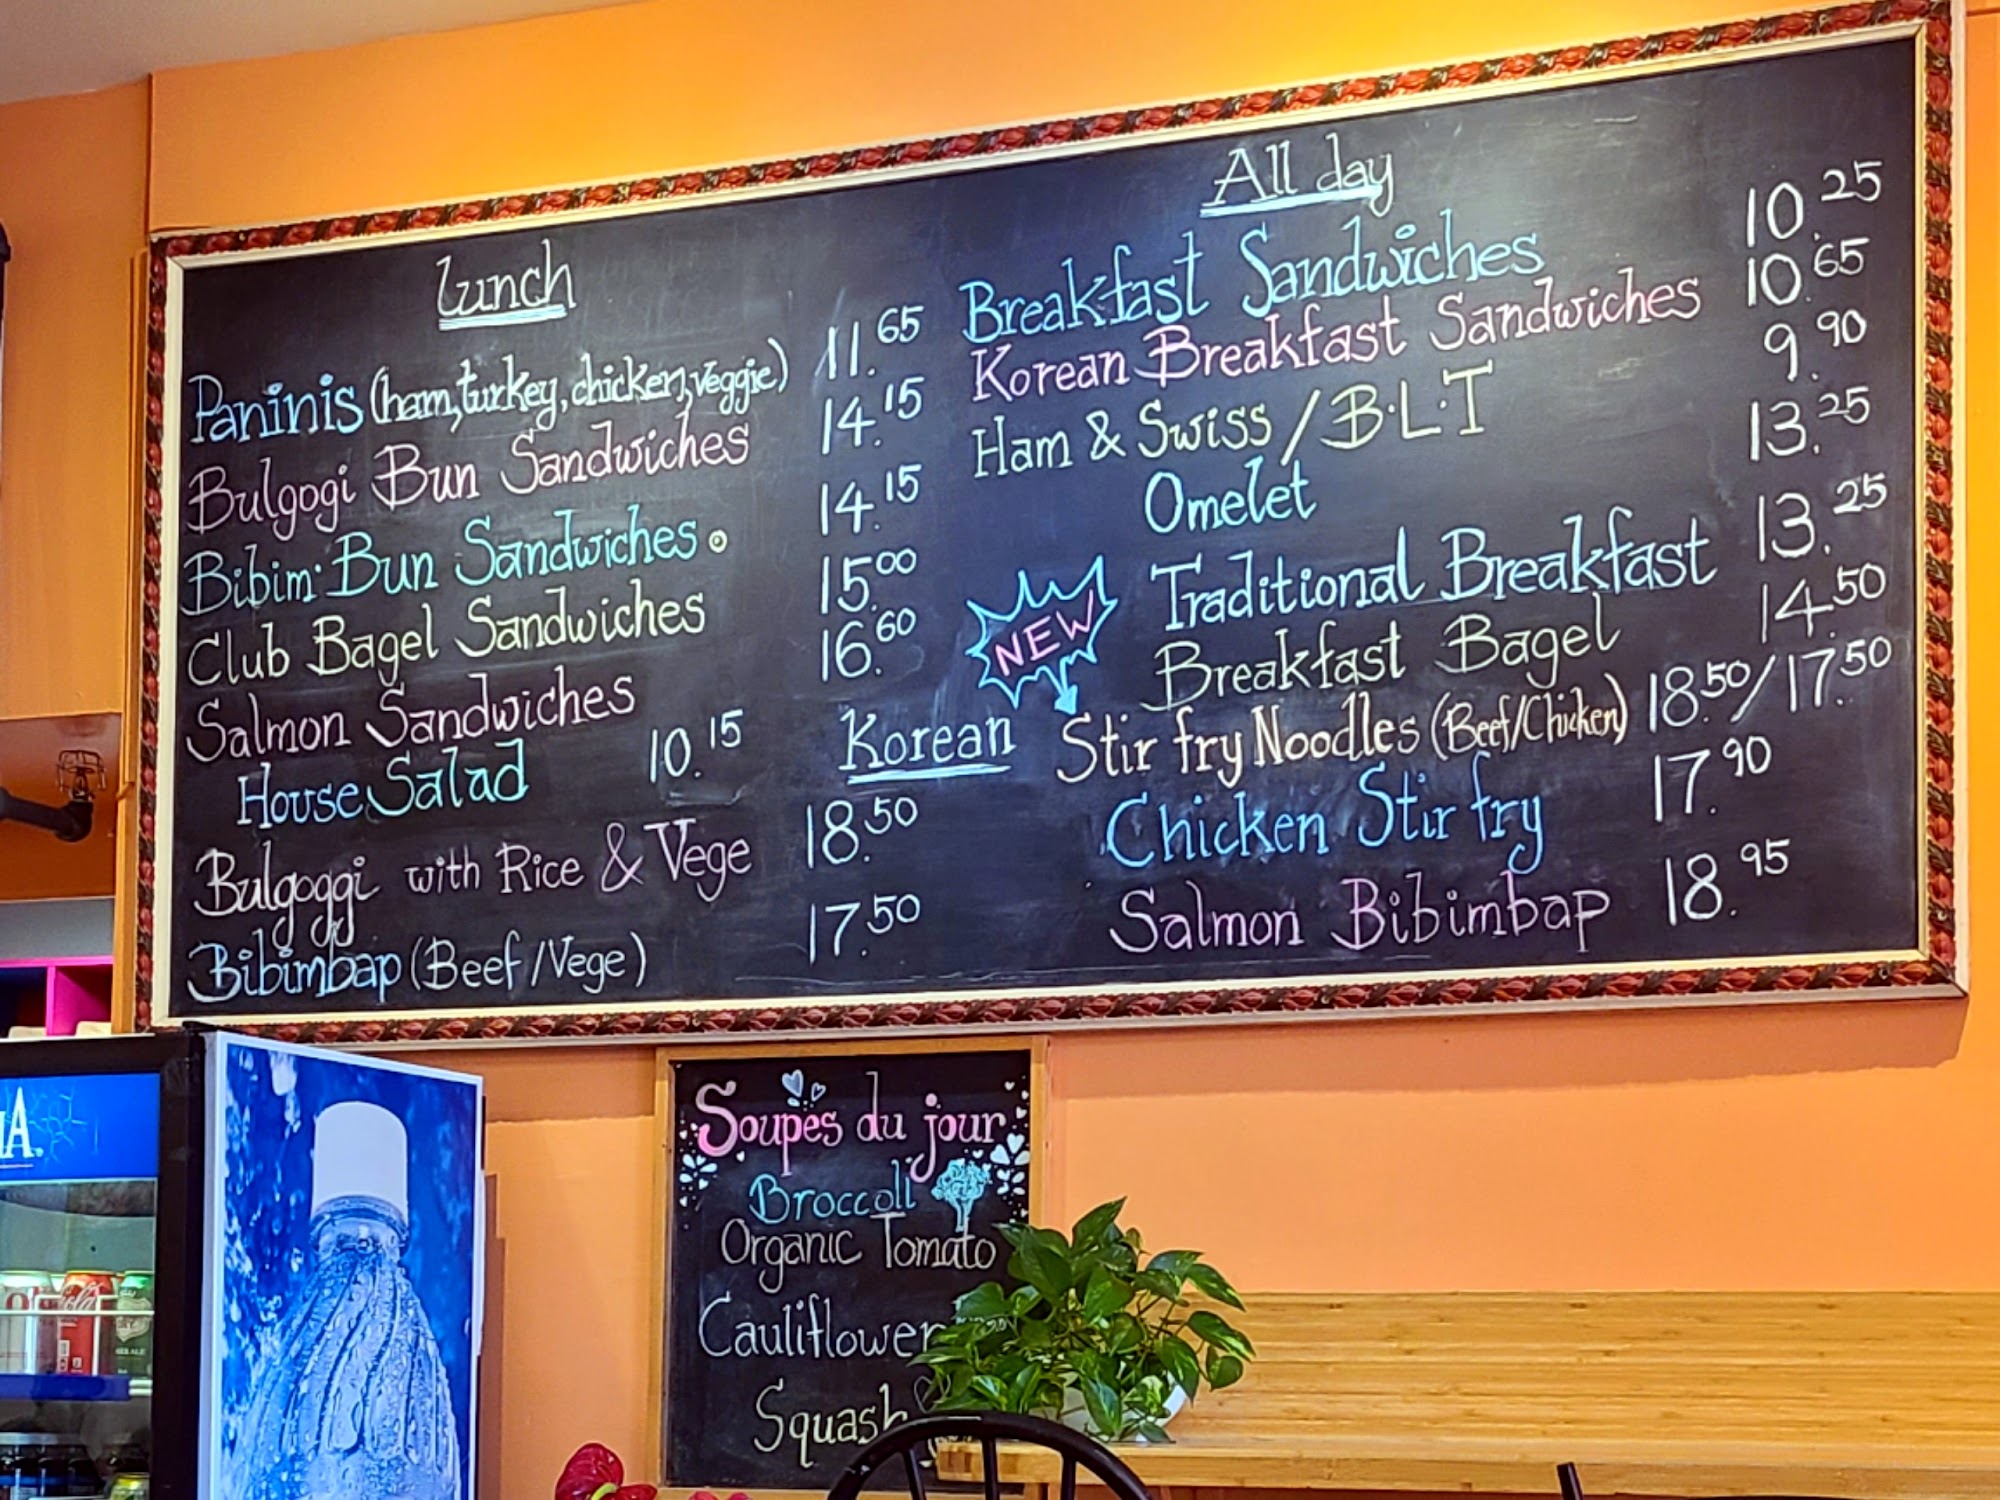 Lunch
Paninis (ham, turkey, chicken, veggie) 11.65
Bulgogi Bun Sandwiches 14.15
Bibim・Bun Sandwiches 14.15
Club Bagel Sandwiches 15.00
Salmon Sandwiches 16.60
House Salad 10.15
Korean
Bulgoggi with Rice & Vege 18.50
Bibimbap (Beef/Vege) 17.50
All day
Breakfast Sandwiches 10.25
Korean Breakfast Sandwiches 10.65
Ham & Swiss / B.L.T 9.90
Omelet 13.25
Traditional Breakfast 13.25
Breakfast Bagel 14.50
NEW
Stir fry Noodles (Beef/Chicken) 18.50/17.50
Chicken Stir fry 17.90
Salmon Bibimbap 18.95
Soupes du jour
Broccoli
Organic Tomato
Cauliflower
Squash